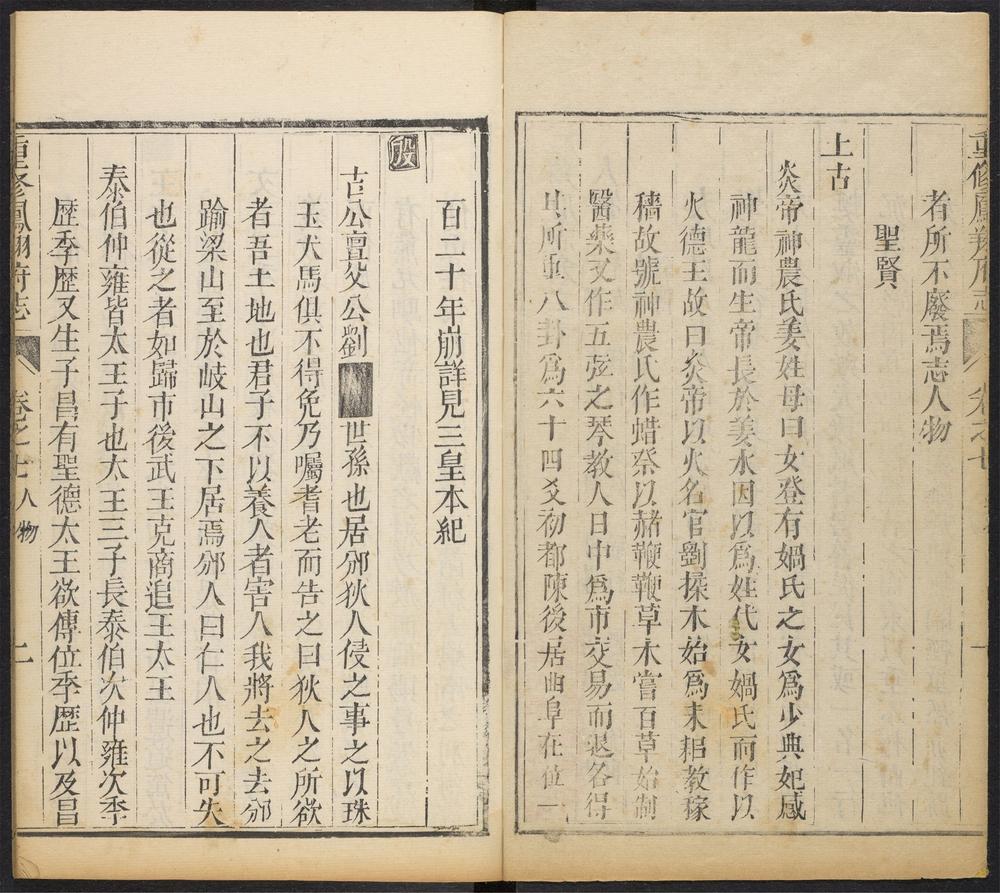 重修鳳翔府志 卷之七 一
者所不廢焉志人物
聖賢
上古
炎帝神農氏姜姓母曰女登有媧氏之女為少典妃感
神龍而生帝長於姜水因以為姓代女媧氏而作以
火德王故曰炎帝以火名官劉揉木始為耒耜教稼
穡故號神農氏作蜡祭以赭鞭鞭草木嘗百草始制
醫藥又作五弦之琴教人日中為市交易而退各得
其所重八卦為六十四爻初都陳後居曲阜在位一
百二十年崩詳見三皇本紀
殷
古公亶父公劉 世孫也居邠狄人侵之事之以珠
玉犬馬俱不得免乃囑耆老而告之曰狄人之所欲
者吾土地也君子不以養人者害人我將去之去邠
踰梁山至於岐山之下居焉邠人曰仁人也不可失
也從之者如歸市後武王克商追王太王
泰伯仲雍皆太王子也太王三子長泰伯次仲雍次季
歷季歷又生子昌有聖德太王欲傳位季歷以及昌
重修鳳翔府志 卷之七 人物 二